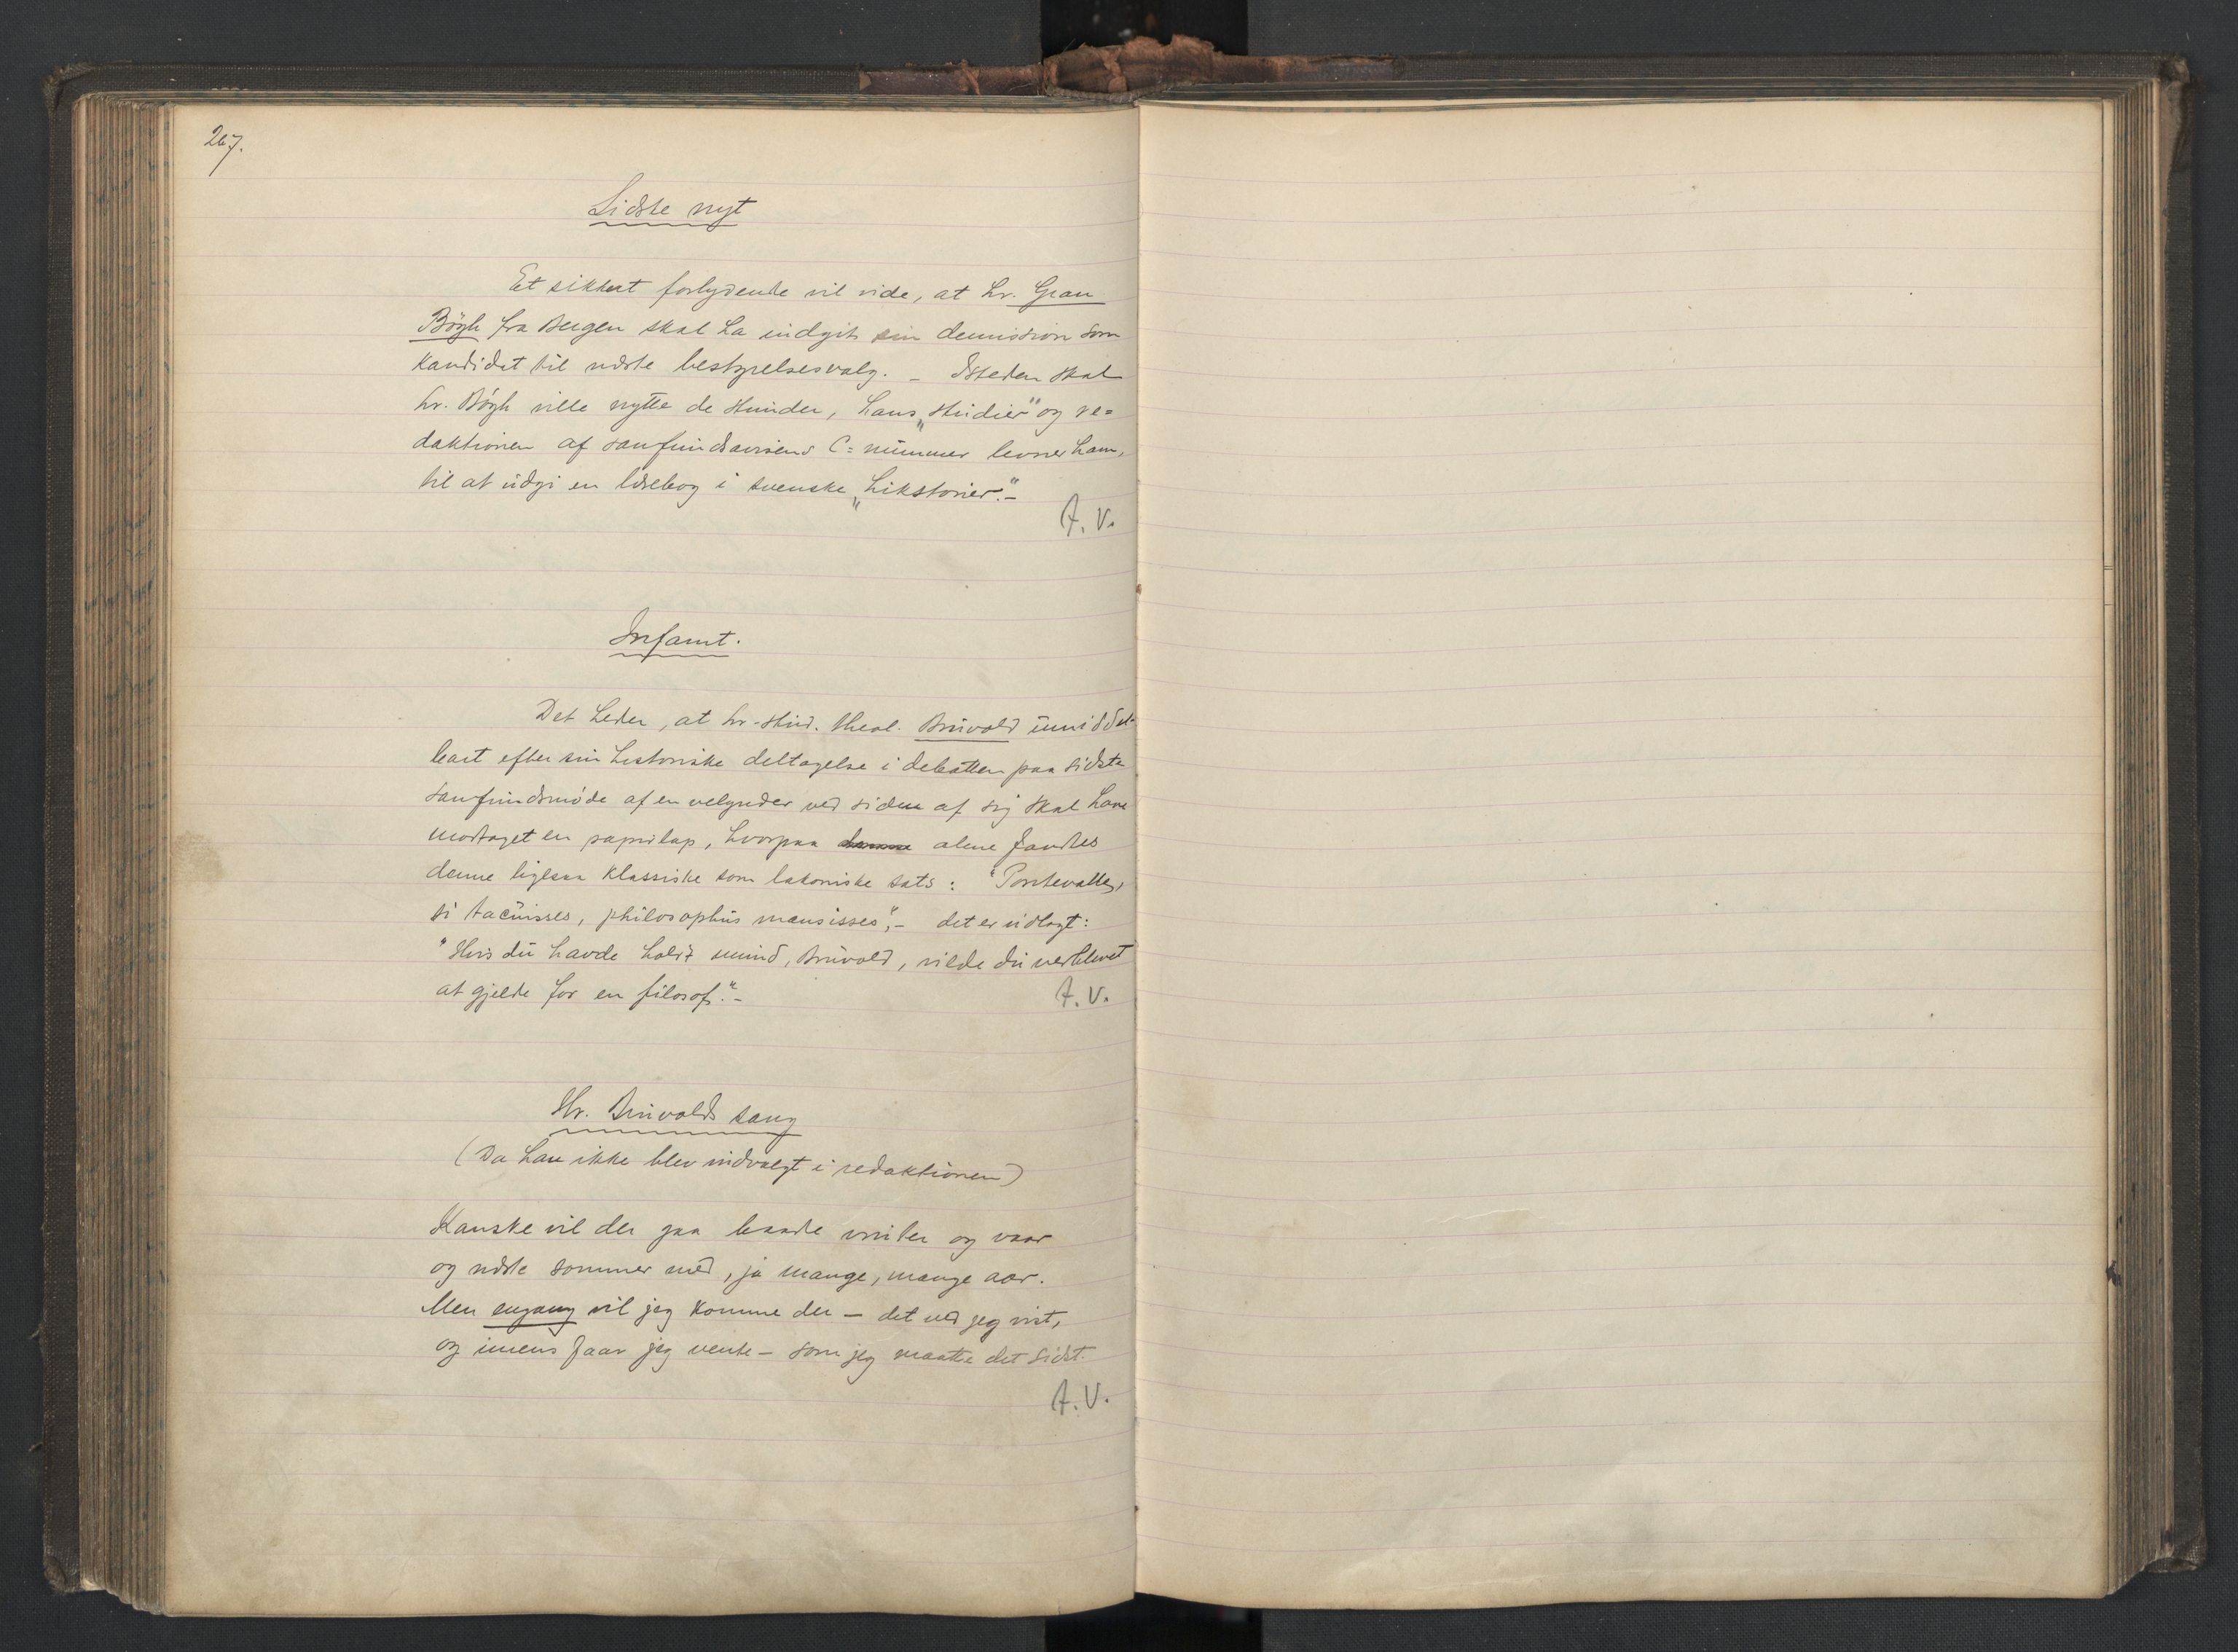 267.
Sidste nyt
Et sikkert forlydende vil vide, at hr. Gran
Bøgh fra Bergen skal ha indgit sin demission som
kandidat til næste bestyrelsesvalg. — Isteden skal
hr. Bøgh ville nytte de stunder, hans „studier" og re=
daktionen af samfundsavisens C=nummer levner ham,
til at udgi en læsebog i svenske „Likstorier."—
A. V.
Infamt.
Det heder, at hr. stud. theol. Bruvold umiddel-
bart efter sin historiske deltagelse i debatten paa sidste
samfundsmøde af en velynder ved siden af sig skal have
modtaget en papirlap, hvorpaa denne alene fandtes
denne ligesaa klassiske som lakoniske sats: "Pontevalle,
si tacuisses, philosophus mansisses",— det er udlagt:
"Hvis du havde holdt mund, Bruvold, vilde du verblevet
at gjelde for en filosof."—
A. V.
Hr. Bruvolds sang
(Da han ikke blev indvalgt i redaktionen)
Kanske vil der gaa baade vinter og vaar
og næste sommer med, ja mange, mange aar.
Men engang vil jeg komme der — det ved jeg vist,
og imens faar jeg vente — som jeg maatte det sidst.
A. V.